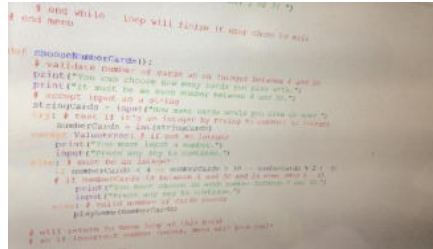 # end while - loop will finish if user chose to exit
# end menu
def chooseNumberCards():
# validate number of cards as an integer between 4 and 30
print("You can choose how many cards you play with.")
print("It must be an even number between 4 and 30.")
# accept input as a string
stringCards = input("How many cards would you like to use? ")
try: # test if it's an integer by trying to convert to integer
numberCards = int(stringCards)
except ValueError: # if not an integer
print("You must input a number.")
input("Press any key to continue.")
else: # must be an integer
if numberCards < 4 or numberCards > 30 numberCards % 2
# if numberCards is between 4 and 30 and is even
print("You must choose an even number between 4 and 30.")
input("Press any key to continue.")
else: # valid number of cards
playGame(numberCards)
# will return to menu loop at this point
# so if incorrect number entered, menu will